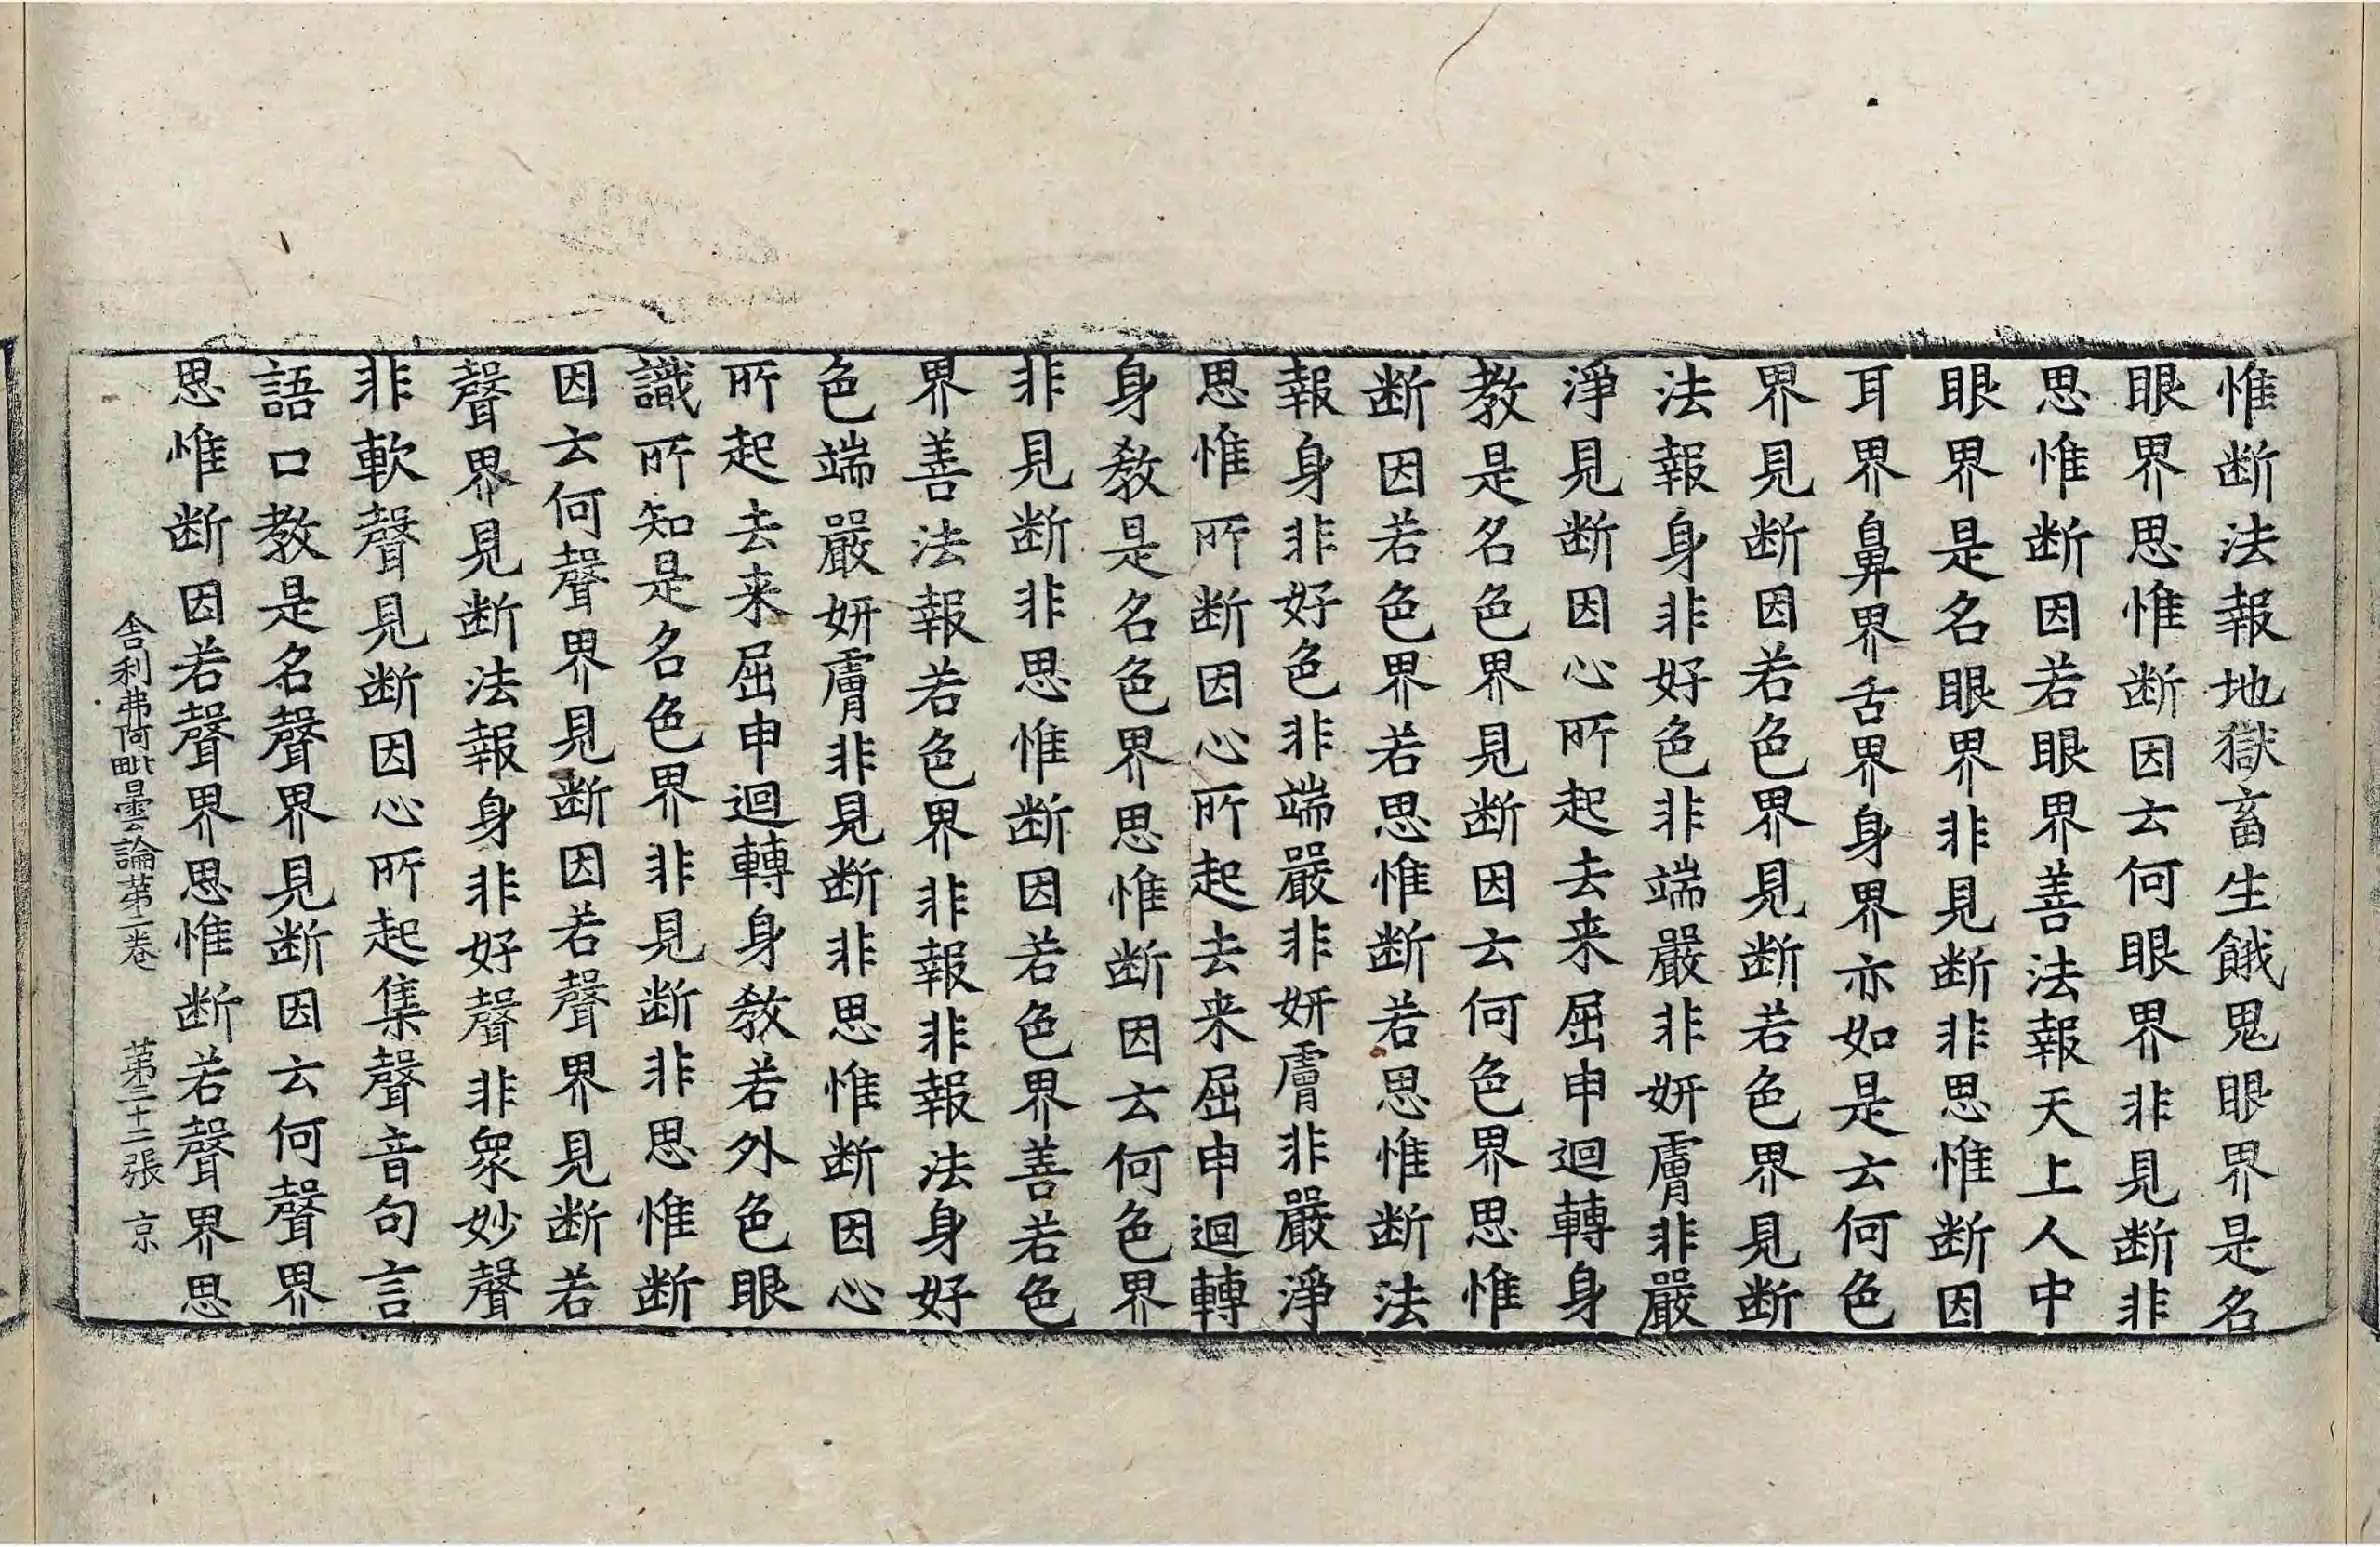 惟断法報地獄畜生餓鬼眼界是名
眼界思惟断因云何眼界非見断非
思惟断因若眼界善法報天上人中
眼界是名眼界非見断非思惟断因
耳界鼻界舌界身界亦如是云何色
界見断因若色界見断若色界見断
法報身非好色非端嚴非妍膚非嚴
淨見断因心所起去来屈申迴轉身
教是名色界見断因云何色界思惟
断因若色界若思惟断若思惟断法
報身非好色非端嚴非妍膚非嚴淨
思惟所断因心所起去来屈申迴轉
身教是名色界思惟断因云何色界
非見断非思惟断因若色界善若色
界善法報若色界非報非報法身好
色端嚴妍膚非見断非思惟断因心
所起去来屈申迴轉身教若外色眼
識所知是名色界非見断非思惟断
因云何聲界見断因若聲界見断若
聲界見断法報身非好聲非衆妙聲
非軟聲見断因心所起集聲音句言
語口教是名聲界見断因云何聲界
思惟断因若聲界思惟断若聲界思
舎利弗阿毗曇論苐二卷 苐三十二張 京